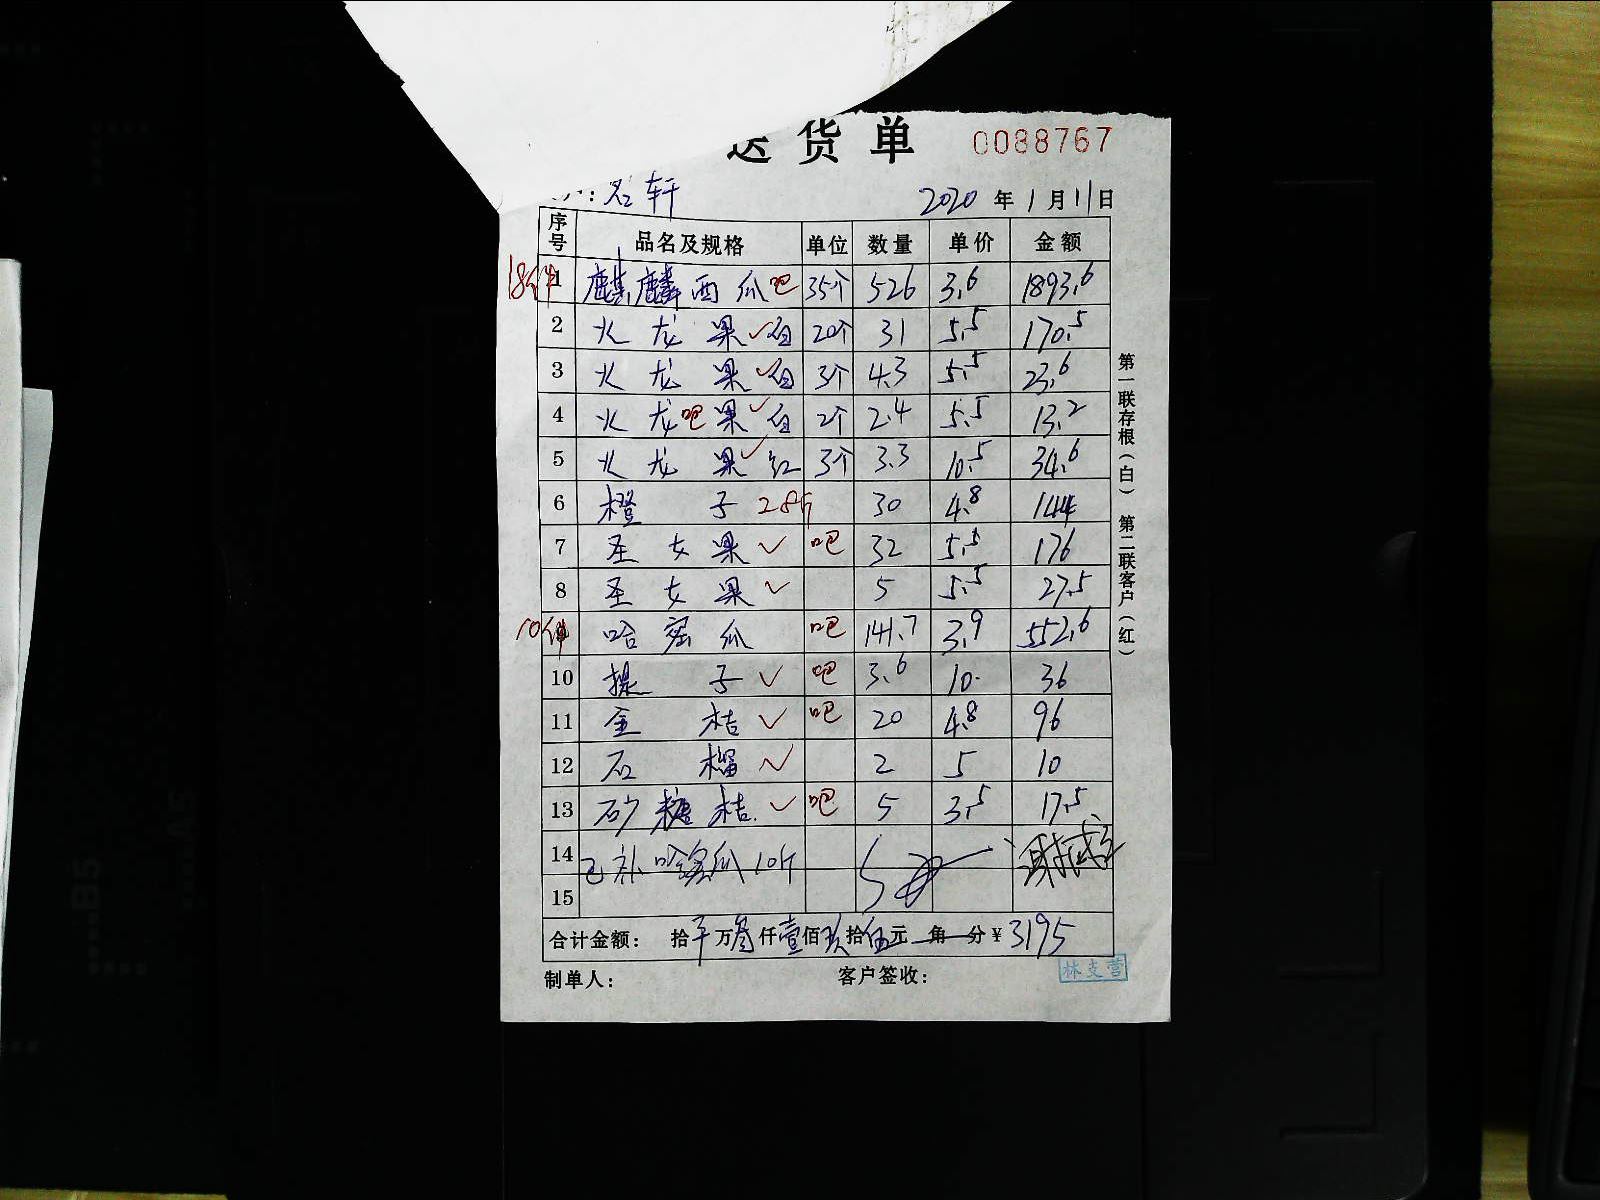 送货单 0088767
：名轩 2020年1月11日
序号 品名及规格 单位 数量 单价 金额
18件 1 麒麟西瓜 吧 35个 526 3.6 1893.6
2 火龙果✓白 20个 31 5.5 170.5
3 火龙果✓白 3个 4.3 5.5 23.6
4 火龙吧果✓白 2个 2.4 5.5 13.2
5 火龙果✓红 3个 3.3 10.5 34.6
6 橙子 28斤 30 4.8 144
7 圣女果✓ 吧 32 5.5 176
8 圣女果✓ 5 5.5 27.5
10件 哈密瓜 吧 141.7 3.9 552.6
10 提子✓ 吧 3.6 10. 36
11 金桔✓ 吧 20 4.8 96
12 石榴✓ 2 5 10
13 砂糖桔.✓ 吧 5 3.5 17.5
14 已补哈密瓜10斤
15
合计金额： 拾 万叁仟壹佰玖拾伍元 角 分¥3195
制单人： 客户签收：
林支营
第一联存根（白） 第二联客户（红）
B5
A5